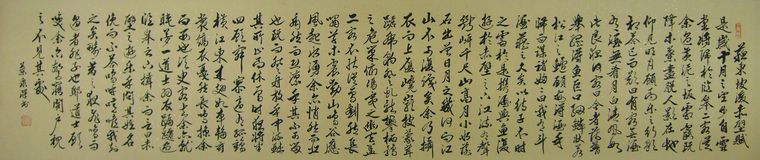 蘇東坡後赤壁賦
是歲十月之望步自雪
堂將歸于臨皋二客從
余過黃泥之坂霜露既
降木葉盡脫人影在地
仰見明月顧而樂之行歌
相答已而歎曰有客無酒
有酒無肴月白風清如
此良夜何客曰今者薄暮
舉網得魚巨口細鱗狀如
松江之鱸顧安所得酒乎
歸而謀諸婦婦曰我有斗
酒藏之久矣以待子不時
之需於是攜酒與魚復
遊於赤壁之下江流有聲
斷岸千尺山高月小水落
石出曾日月之幾何而江
山不可復識矣余乃攝
衣而上履巉巖披蒙茸
踞虎豹登虬龍攀栖鶻
之危巢俯馮夷之幽宮蓋
二客不能從焉劃然長
嘯草木震動山鳴谷應
風起水涌余亦悄然而悲
肅然而恐凜乎其不可留
也反而登舟放乎中流聽
其所止而休焉時夜將半
四顧寂寥適有孤鶴
橫江東來翅如車輪玄
裳縞衣戛然長鳴掠余
舟而西也須臾客去余亦就
睡夢一道士羽衣蹁躚過
臨皋之下揖余而言曰赤
壁之遊樂乎問其姓名
俛而不答嗚呼噫嘻我知
之矣疇昔之夜飛鳴而
過我者非子也耶道士顧
笑余亦驚寤開戶視
之不見其處